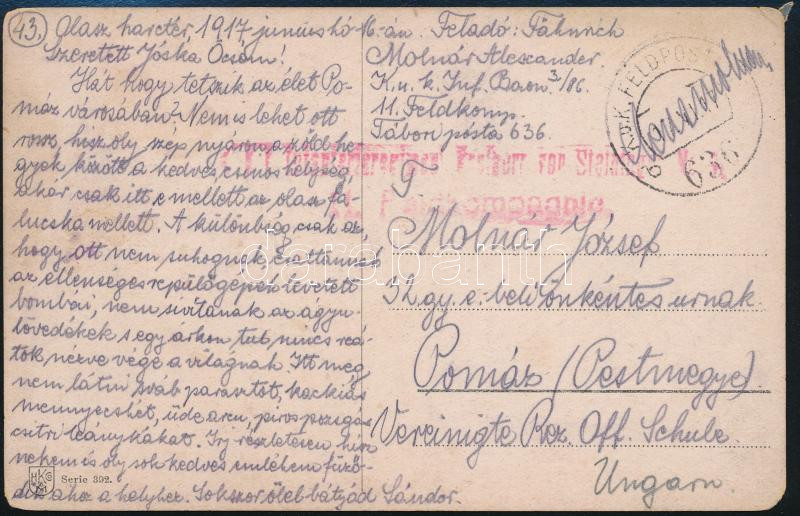 43.
Olasz harctér, 1917 junius hó 16-án.
Szeretett Jóska Öcsém!
Hát hogy tetszik az élet Po-
máz városában? Nem is lehet ott
rossz, hisz oly szép nyáron a zöld he-
gyek között a kedves csinos helység,
akár csak itt e mellett az olasz fa-
lucska mellett. A különbség csak az,
hogy ott nem suhognak, csattannak
az ellenséges repülőgépek levetett
bombái, nem sivitanak az ágyu-
lövedékek s egy árkon tul nincs reá-
tok nézve vége a világnak. Itt meg
nem látni sváb parasztot, kackiás
mennyecskét, üde arcu, piros pozsgás
csitri leánykákat. Irj részletesen hisz
nekem is oly sok kedves emlékem füző-
dik ahoz a helyhez. Sokszor ölel bátyád Sándor.
Feladó: Fähnrich
Molnár Alexander
K.u.k. Inf. Baon. 3/86.
11. Feldkomp.
Tábori posta 636.
K.u.K. FELDPOST
636
Freiherr von
Feldkompagnie
T.
Molnár József
32. gy. e.-beli önkéntes urnak.
Pomáz (Pestmegye).
Vereinigte Rez. Off. Schule.
Ungarn.
Serie 392.
darabanth